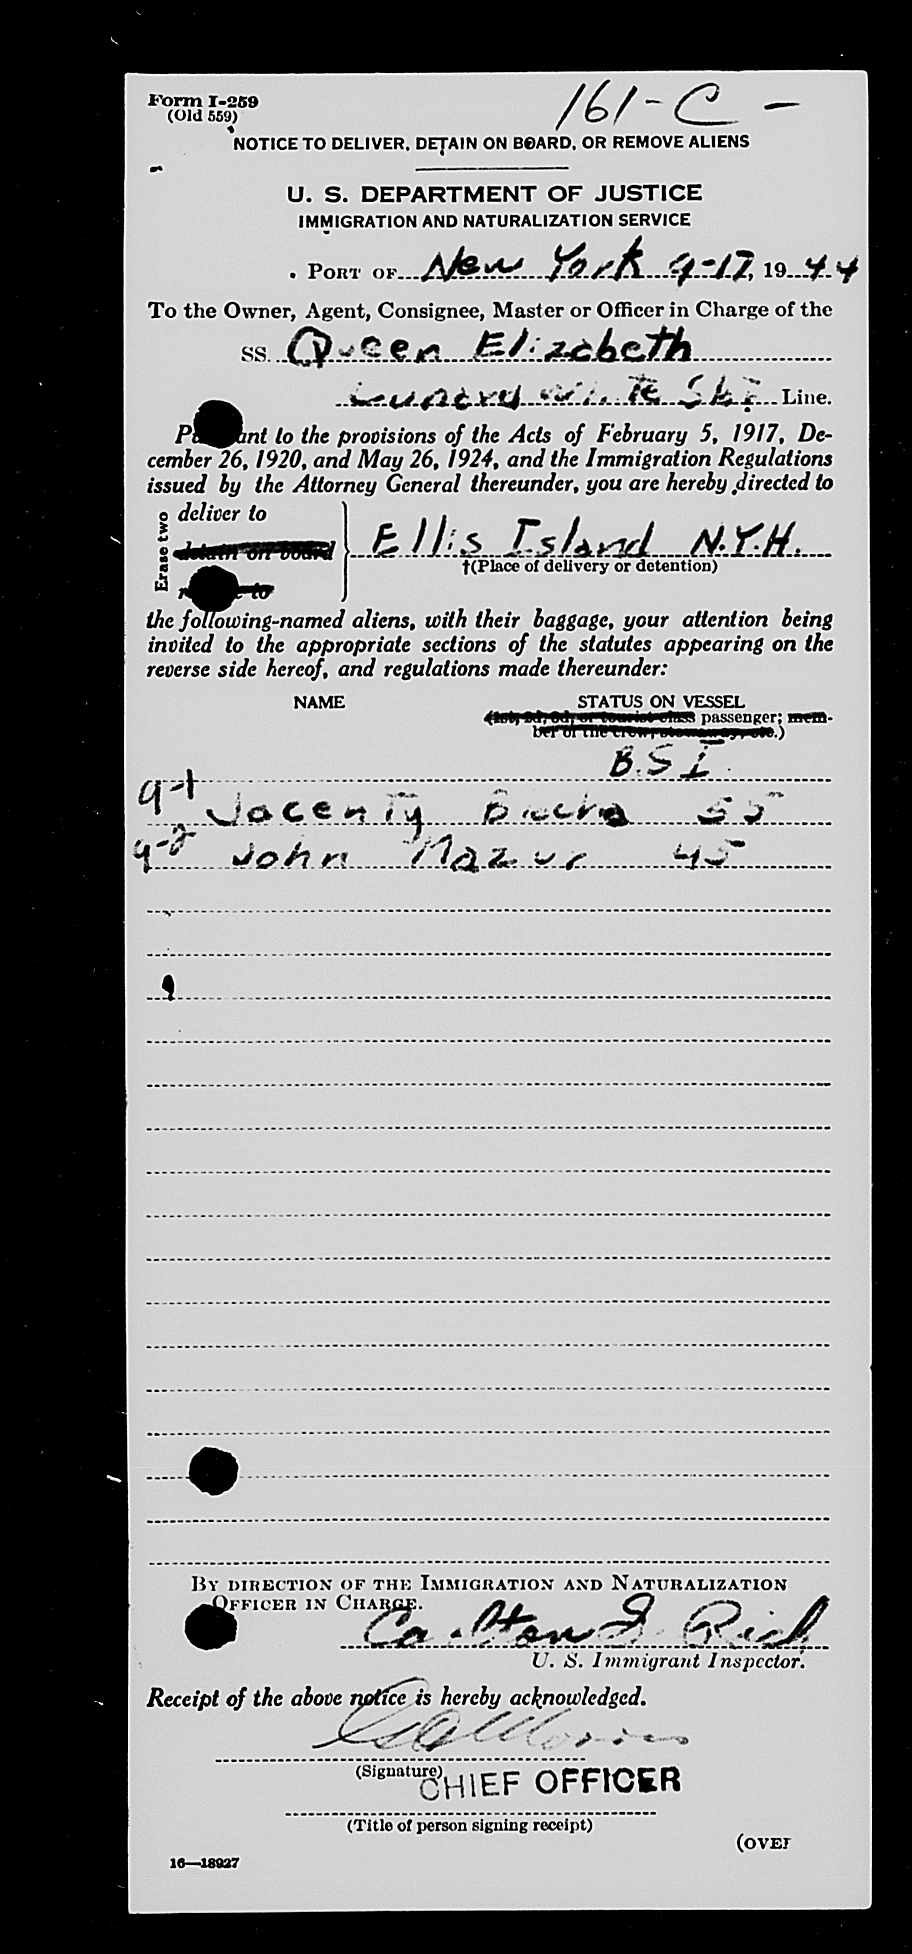 Form I-259
(Old 559)
161-C-
NOTICE TO DELIVER, DETAIN ON BOARD, OR REMOVE ALIENS
U. S. DEPARTMENT OF JUSTICE
IMMIGRATION AND NATURALIZATION SERVICE
PORT OF New York 9-17, 1944
To the Owner, Agent, Consignee, Master or Officer in Charge of the
SS. Queen Elizabeth
Cunard White Star Line.
Pursuant to the provisions of the Acts of February 5, 1917, De-
cember 26, 1920, and May 26, 1924, and the Immigration Regulations
issued by the Attorney General thereunder, you are hereby directed to
Erase two
deliver to
detain on board
to
Ellis Island N.Y.H.
†(Place of delivery or detention)
the following-named aliens, with their baggage, your attention being
invited to the appropriate sections of the statutes appearing on the
reverse side hereof, and regulations made thereunder:
NAME STATUS ON VESSEL
(1st, 2d, 3d, or tourist class passenger; mem-
ber of the crew, stowaway, etc.)
B.S.I.
9-1 Jacenty 55
9-2 John Mazur 45
BY DIRECTION OF THE IMMIGRATION AND NATURALIZATION
OFFICER IN CHARGE.
Carlton I. Rich
U. S. Immigrant Inspector.
Receipt of the above notice is hereby acknowledged.
(Signature)
CHIEF OFFICER
(Title of person signing receipt)
(OVER
16—18927